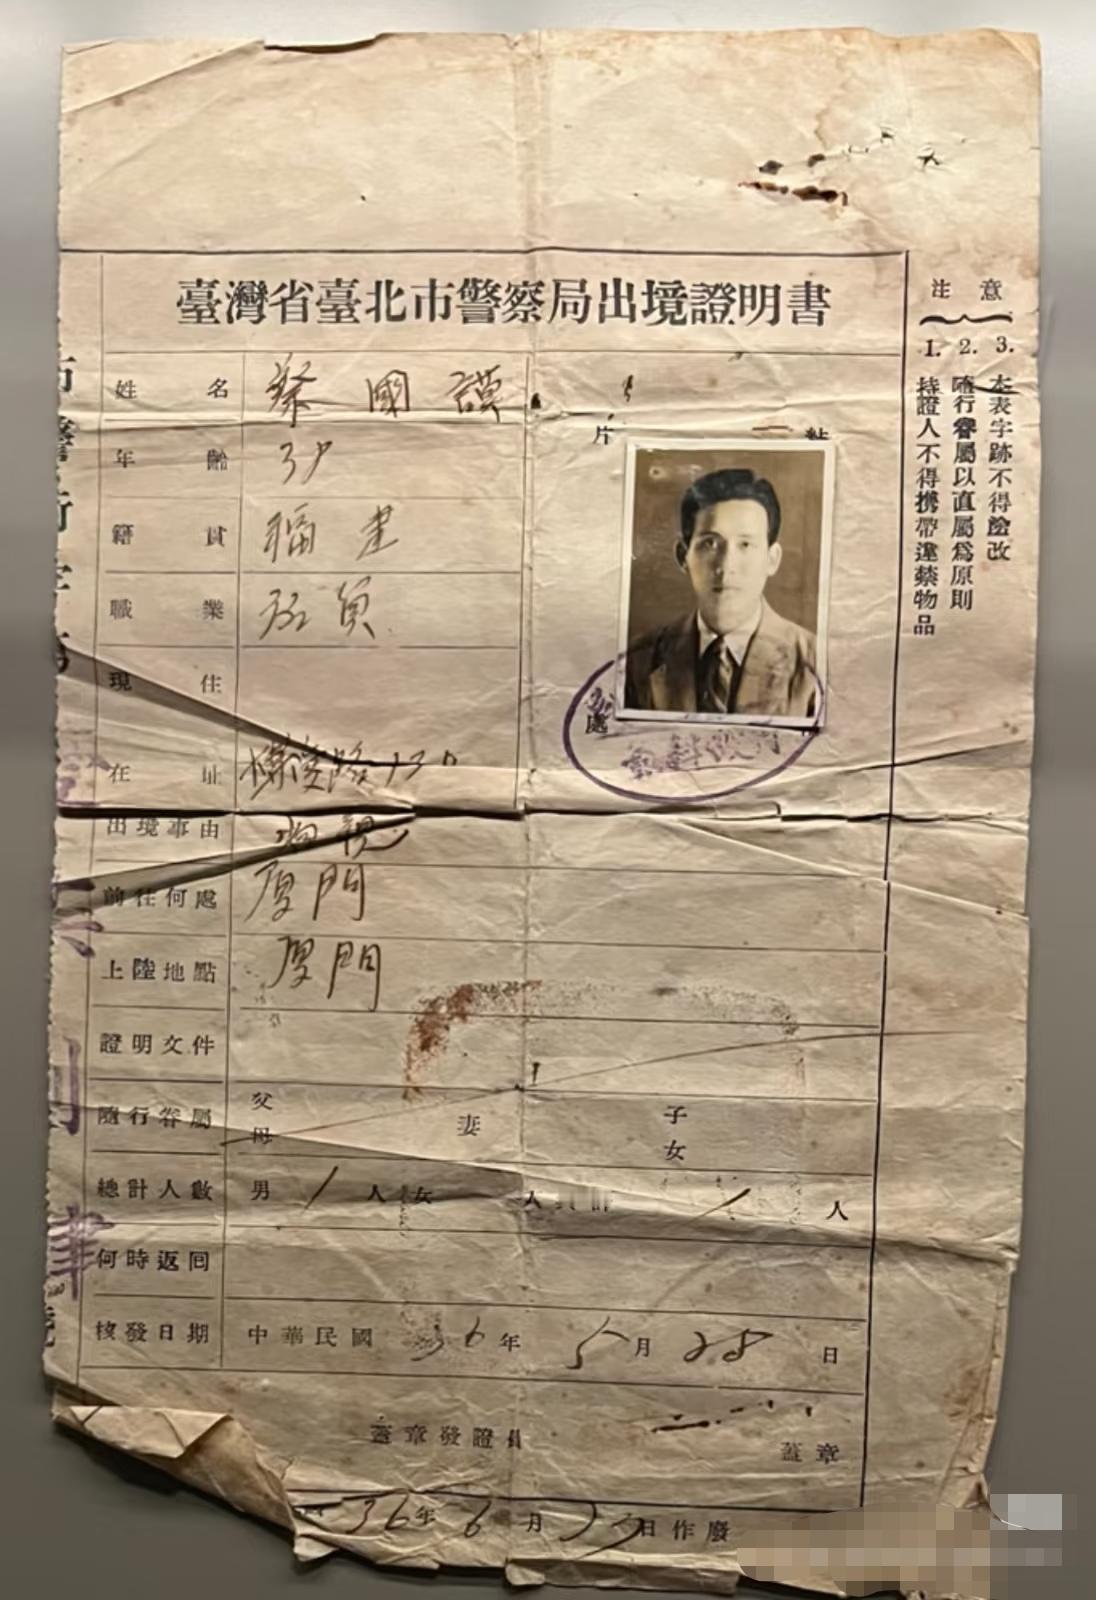 臺灣省臺北市警察局出境證明書
姓名 蔡國謨
年齡
籍貫 福建
職業 員
現住
在址 路130
出境事由 親
前往何處 厦門
上陸地點 厦門
證明文件
隨行眷屬 父母 妻 子女
總計人數 男 1 人 女 人 1 人
何時返回
核發日期 中華民國 36年 5月 28日
蓋章發證員 蓋章
36年 6月 日作廢
片
粘
處
注意
1. 持證人不得携帶違禁物品
2. 隨行眷屬以直屬為原則
3. 本表字跡不得塗改